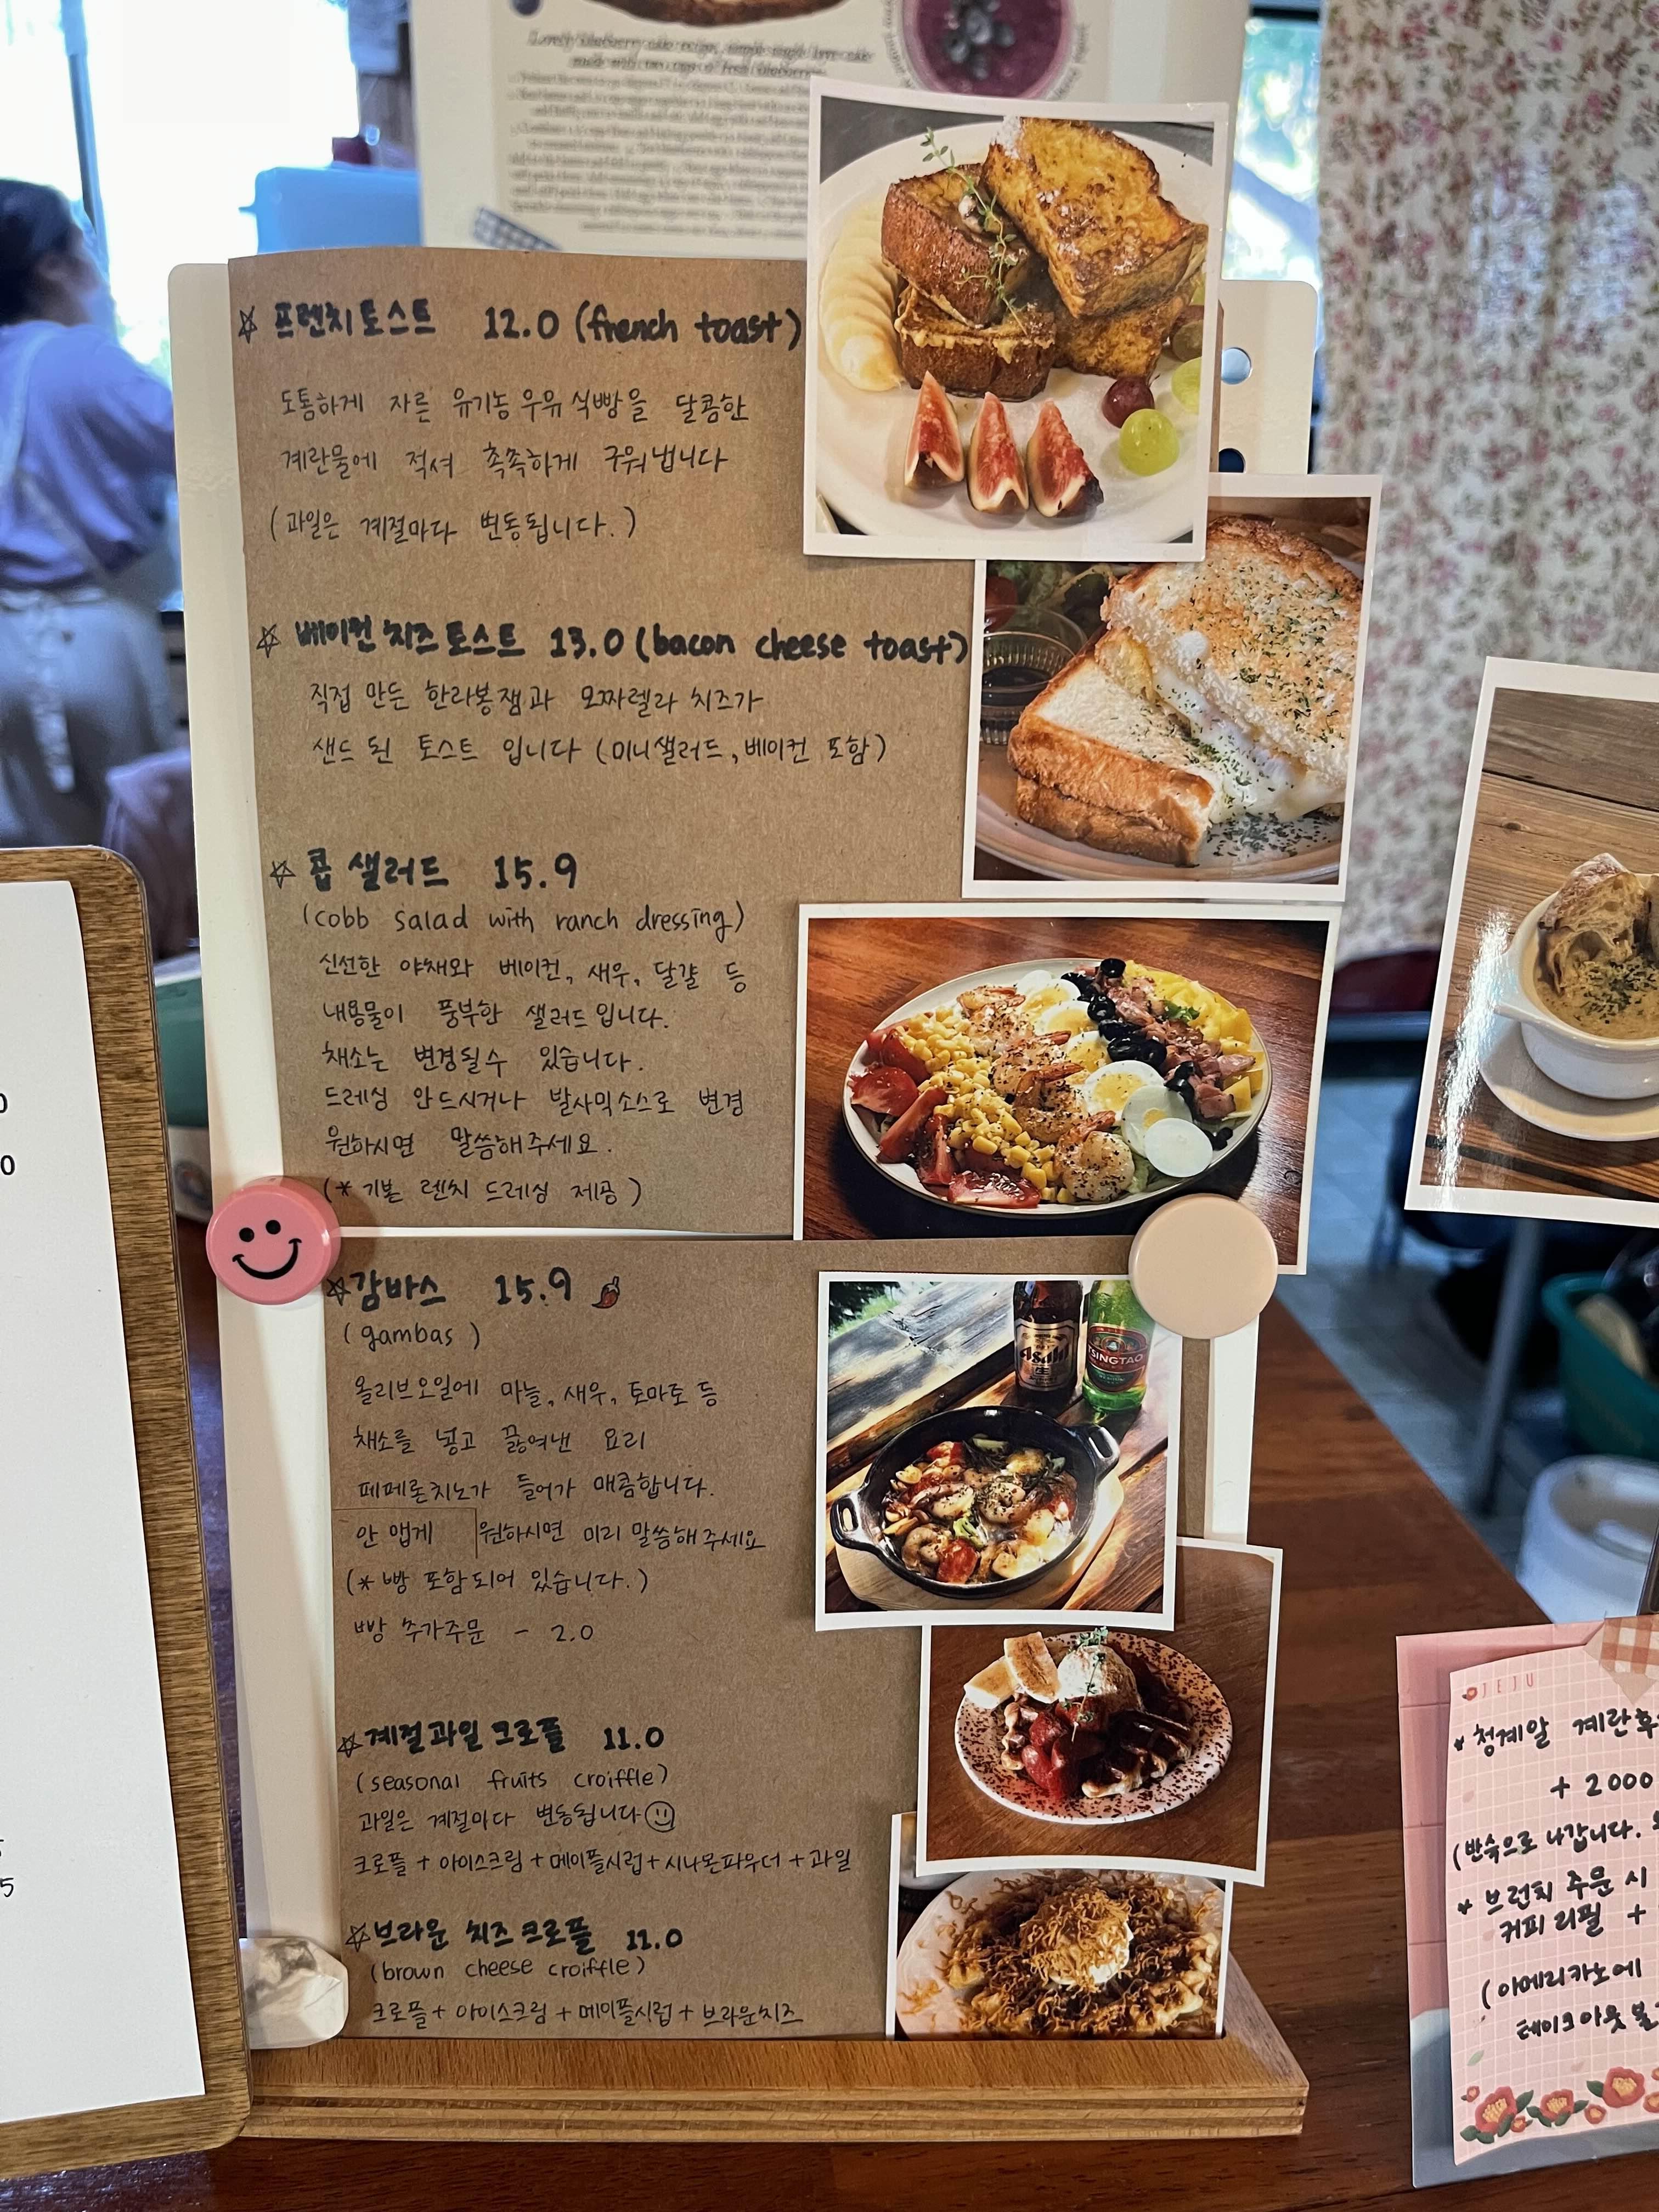 ☆ 프렌치토스트 12.0 (french toast)
도톰하게 자른 유기농우유식빵을 달콤한
계란물에 적셔 촉촉하게 구워냅니다
(과일은 계절마다 변동됩니다.)
☆ 베이컨치즈토스트 13.0 (bacon cheese toast)
직접 만든 한라봉잼과 모짜렐라 치즈가
샌드 된 토스트 입니다 (미니샐러드, 베이컨 포함)
☆ 콥 샐러드 15.9
(cobb salad with ranch dressing)
신선한 야채와 베이컨, 새우, 달걀 등
내용물이 풍부한 샐러드입니다.
채소는 변경될수 있습니다.
드레싱 안드시거나 발사믹소스로 변경
원하시면 말씀해주세요.
(* 기본 렌치 드레싱 제공)
☆감바스 15.9
(gambas)
올리브오일에 마늘, 새우, 토마토 등
채소를 넣고 끓여낸 요리
페페론치노가 들어가 매콤합니다.
안 맵게 원하시면 미리 말씀해주세요
(* 빵 포함되어 있습니다.)
빵 추가주문 - 2.0
☆계절과일 크로플 11.0
(seasonal fruits croiffle)
과일은 계절마다 변동됩니다
크로플 + 아이스크림 + 메이플시럽 + 시나몬파우더 + 과일
☆브라운 치즈크로플 11.0
(brown cheese croiffle)
크로플 + 아이스크림 + 메이플시럽 + 브라운치즈
Asahi
TSINGTAO
JEJU
* 청계알 계란후
+ 2000
(반숙으로 나갑니다.
* 브런치 주문 시
커피 리필 +
(아메리카노에
테이크아웃 불